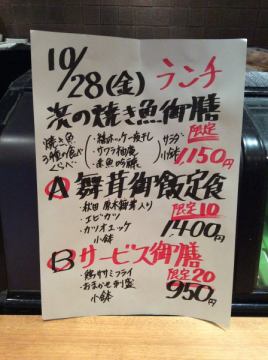 10/28(金) ランチ
炭の焼き魚御膳
焼き魚
3種の食べ
くらべ
・縞ホッケ一夜干し
・サワラ柚庵
・赤魚吟醸
サラダ
小鉢
限定
1150円
A 舞茸御飯定食
・秋田 原木舞茸入り
・エビカツ
・カツオユッケ
小鉢
限定10
1400円
B サービス御膳
・鶏ササミフライ
・おまかせ刺盛
小鉢
限定20
950円